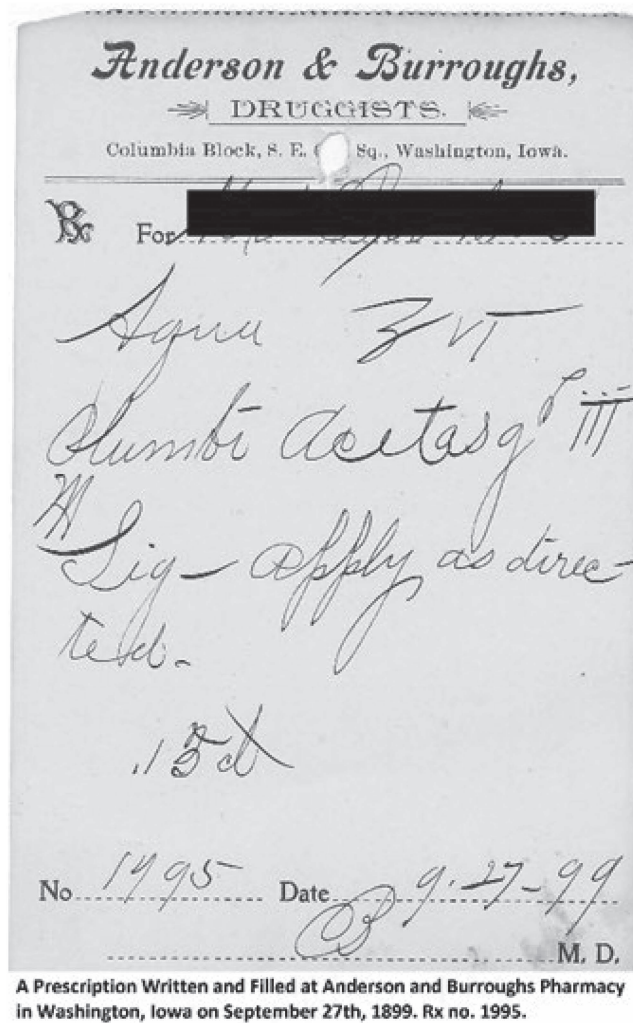 Anderson & Burroughs,
DRUGGISTS.
Columbia Block, S. E. Sq., Washington, Iowa.
Rx For
Aqua ℥ VI
Plumbi Acetas gr iii
M
Sig- apply as direc-
ted.
.15
No. 1995 Date 9-27-99
B M. D.
A Prescription Written and Filled at Anderson and Burroughs Pharmacy
in Washington, Iowa on September 27th, 1899. Rx no. 1995.